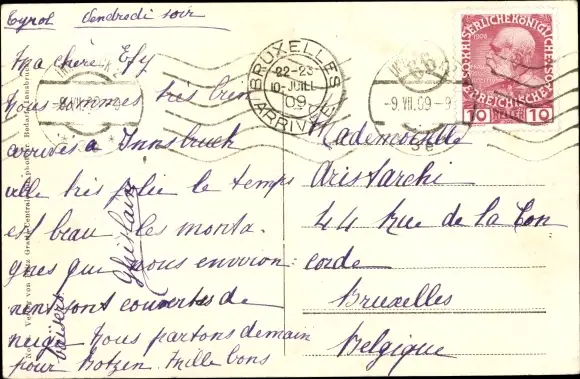 Tyrol Vendredi soir
Ma chère Efy
Nous sommes très bien
arrivés à Innsbruck
ville très jolie le temps
est beau les monta-
gnes que nous environ-
nent sont couvertes de
neige Nous partons demain
pour Botzen. Mille bons
baisers
Ghislain
BRUXELLES
22-23
10-JUILL
09
ARRIVÉE
-9.VII.09-9
KAISERLICHE KÖNIGLICHE
ÖSTERREICHISCHE
1908
10 HELLER 10
Mademoiselle
Aristarchi
44 Rue de la Con
corde
Bruxelles
Belgique